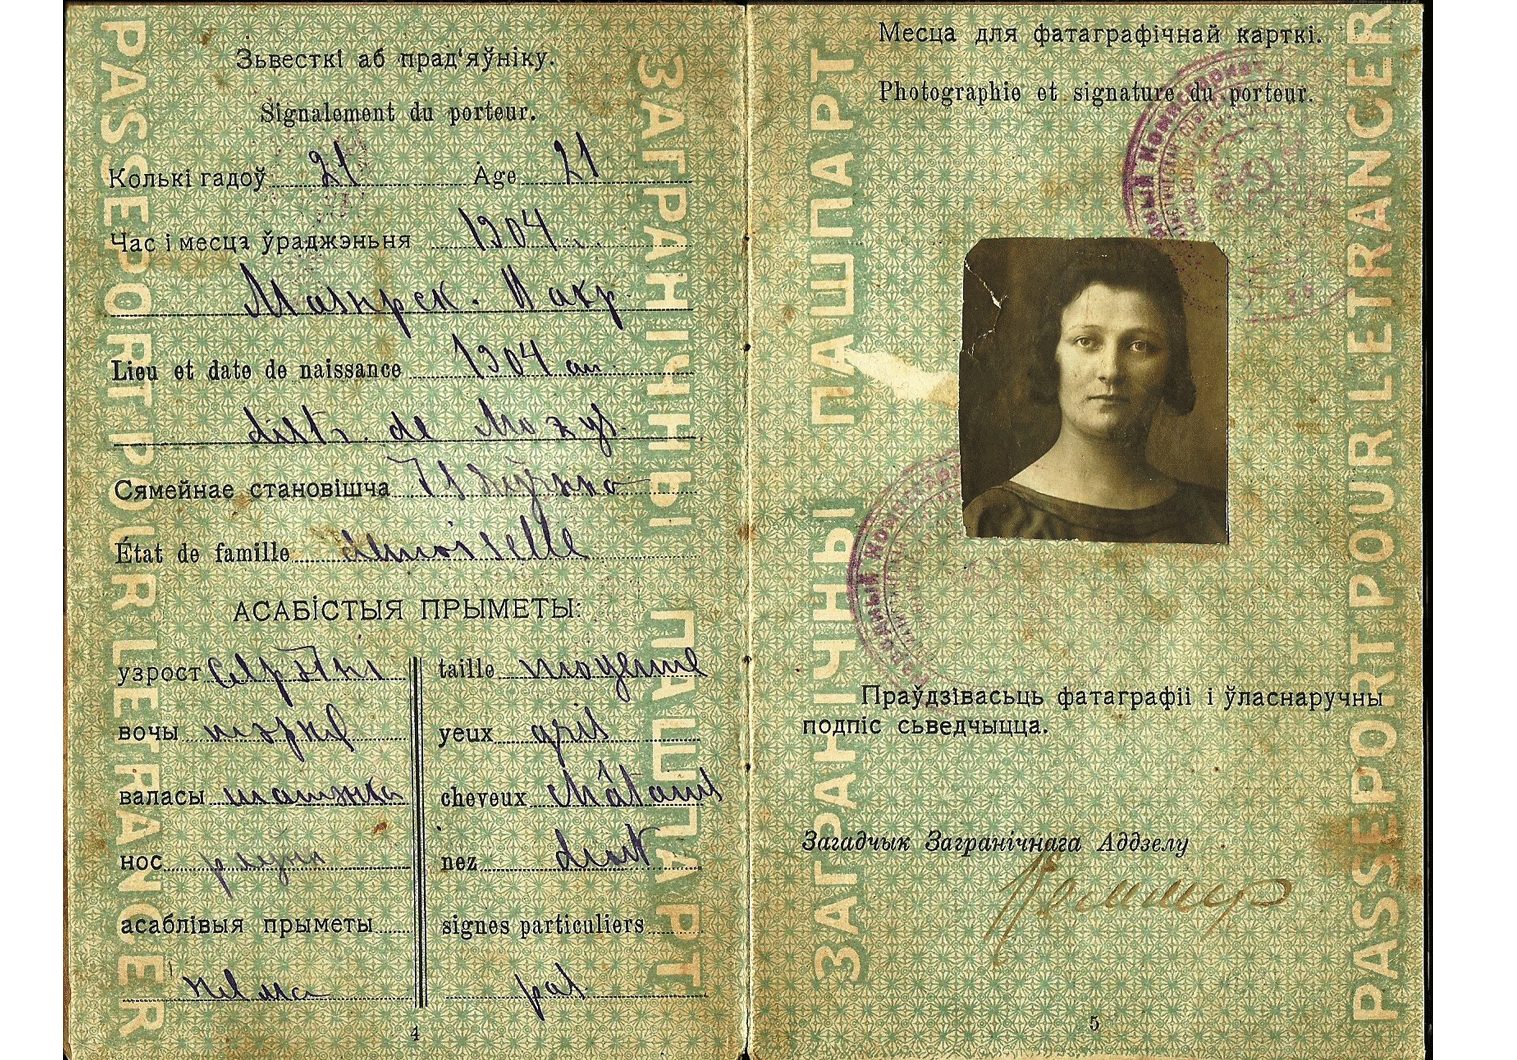 PASSEPORT POUR LE TRANCER
Зьвесткі аб прад'яўніку.
Signalement du porteur.
Колькі гадоў 21 Age 21
Час і месца ўраджэньня 1904
Мазырск. Пакр
Lieu et date de naissance 1904 an
distr. de Mozyr
Сямейнае становішча
État de famille demoiselle
АСАБІСТЫЯ ПРЫМЕТЫ:
узрост сярэдні taille moyenne
вочы шэрыя yeux gris
валасы шатэнка cheveux châtains
нос роўны nez droit
асаблівыя прыметы signes particuliers
няма pas
4
ЗАГРАНІЧНЫ ПАШПАРТ
ЗАГРАНІЧНЫ ПАШПАРТ
Месца для фатаграфічнай карткі.
Photographie et signature du porteur.
Праўдзівасьць фатаграфіі і ўласнаручны
подпіс сьведчыцца.
Загадчык Загранічнага Аддзелу
5
PASSEPORT POUR LETRANCER